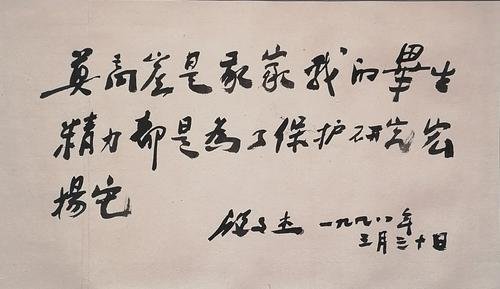 莫高窟是我家我的畢生
精力都是为了保护研究宏
揚它
段文杰 一九九八年
三月三十日